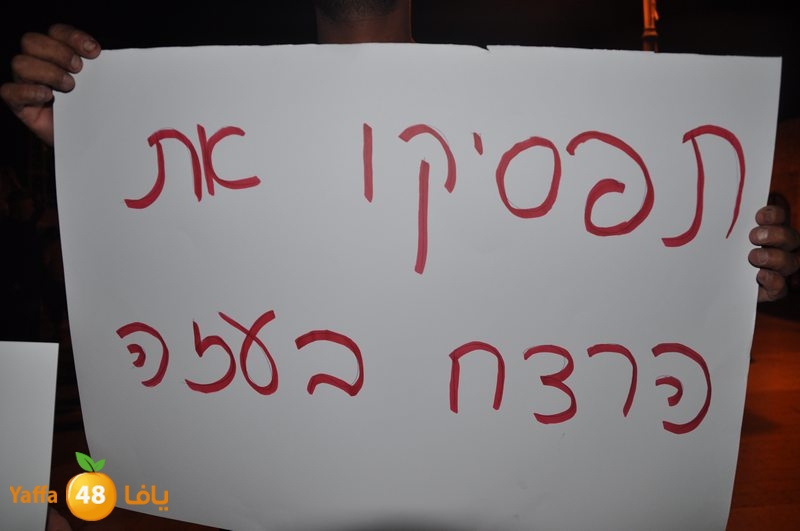 תפסיקו את
הרצח בעזה
Yaffa 48 يافا